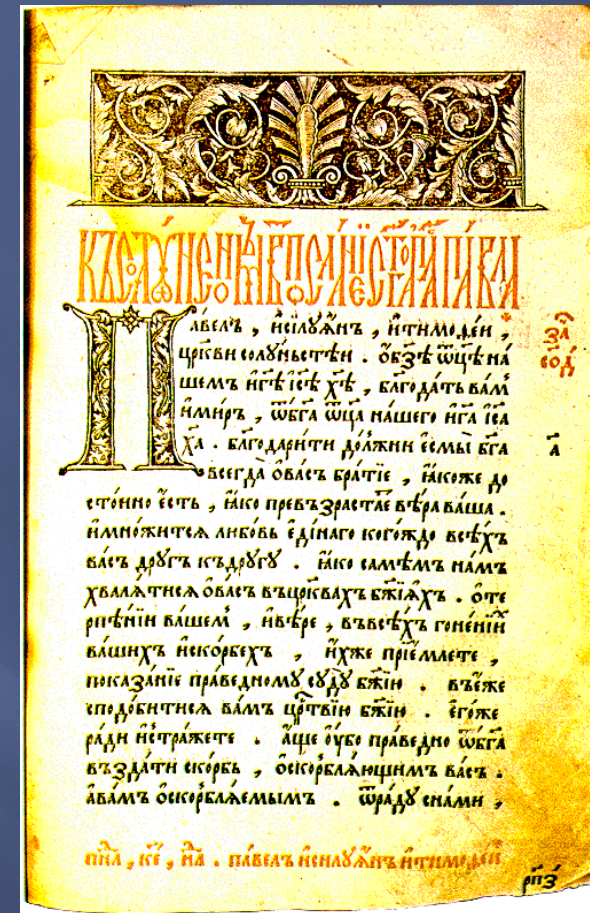 КЪСОЛꙊ́НЕНѠМЪ В҃ ПОСЛА́НІЕ СТ҃ГО АП҃ЛА ПА́ВЛА
Па́велъ , и҆силꙋа́нъ , и҆тимоѳе́и ,
цр҃кви солу́ньстѣи . ѻ҆бз҃ѣ ѿц҃ѣ на́
шемъ и҆г҃ѣ і҆с҃ѣ х҃ѣ , блг҃ода́ть ва́м̾
и҆ми́ръ , ѿбг҃а ѿц҃а на́шего и҆г҃а і҆с҃а
х҃а . блг҃одари́ти до́лжни є҆смы̀ бг҃а
всегда̀ ѻ҆ва́съ бра́тїе , ꙗ҆́коже до
сто́ино є҆́сть , ꙗ҆́ко превъзраста́е вѣ́ра ва́ша .
и҆мно́житсѧ любо́вь є҆ди́наго кого́ждо всѣ́хъ
ва́съ дрꙋ́гъ къдрꙋ́гꙋ . ꙗ҆́ко самѣ́мъ на́мъ
хвалѧ́тисѧ ѻ҆ва́съ въцр҃квахъ бж҃їѧхъ . ѻ҆те
рпѣ́нїи ва́шем̾ , и҆вѣ́ре , въвсѣ́хъ гоне́нїих̾
ва́шихъ и҆ско́рбехъ , и҆́хже прїе́млете ,
показа́нїе пра́ведномꙋ сꙋдꙋ̀ бж҃їю . въє҆́же
сподо́битисѧ ва́мъ црт҃вїю бж҃їю . є҆го́же
ра́ди и҆стра́жете . а҆́ще ѹ҆́бо пра́ведно ѿбг҃а
възда́ти ско́рбь , ѻ҆скорблѧ́ющимъ ва́съ .
а҆ва́мъ ѻ҆скорблѧ́емымъ . ѿра́дꙋ сна́ми ,
за҃
сод҃
а҃
пн҃л , ке҃ , нл҃ . па́велъ и҆силꙋа́нъ и҆тимоѳе́и
рп҃з